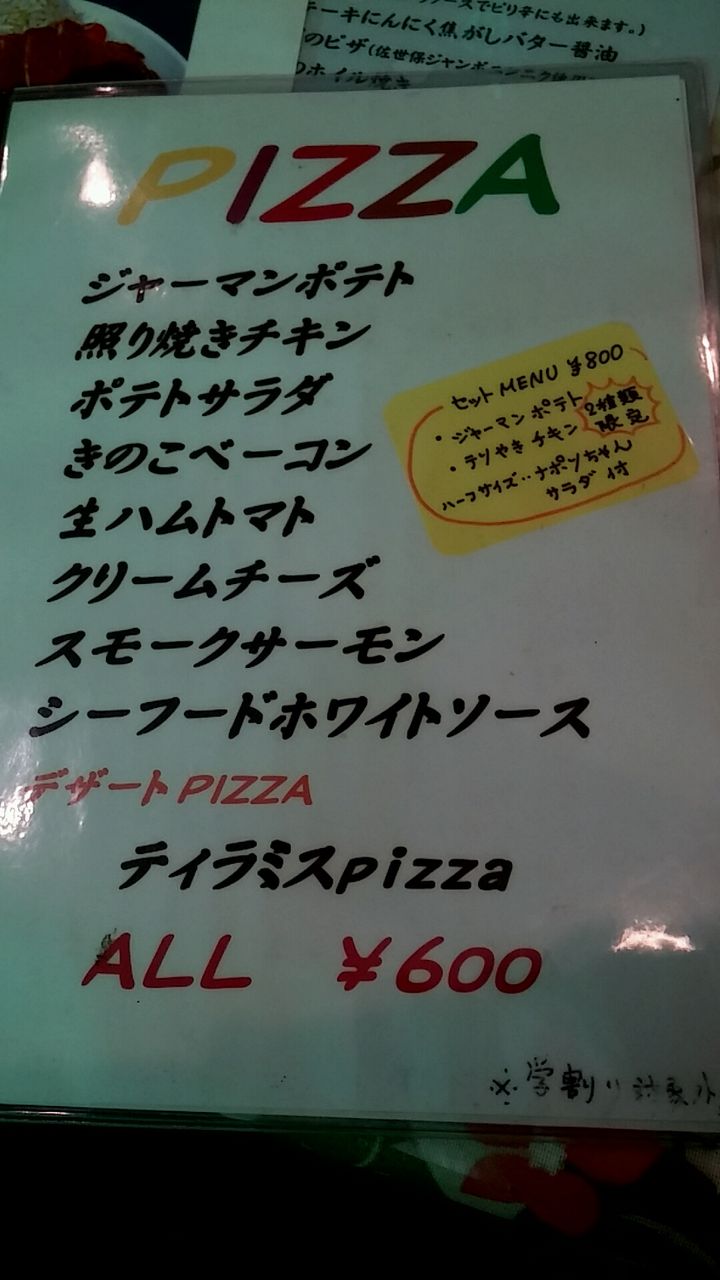 ソースでピリ辛にも出来ます。)
ーキにんにく焦がしバター醤油
のピザ(佐世保ジャンボニンニク使用
のホイル焼き
PIZZA
ジャーマンポテト
照り焼きチキン
ポテトサラダ
きのこベーコン
生ハムトマト
クリームチーズ
スモークサーモン
シーフードホワイトソース
セットMENU ¥800
・ジャーマンポテト
・テリやきチキン
2種類
限定
ハーフサイズ‥ナポリちゃん
サラダ付
デザートPIZZA
ティラミスpizza
ALL ¥600
※学割り対象外